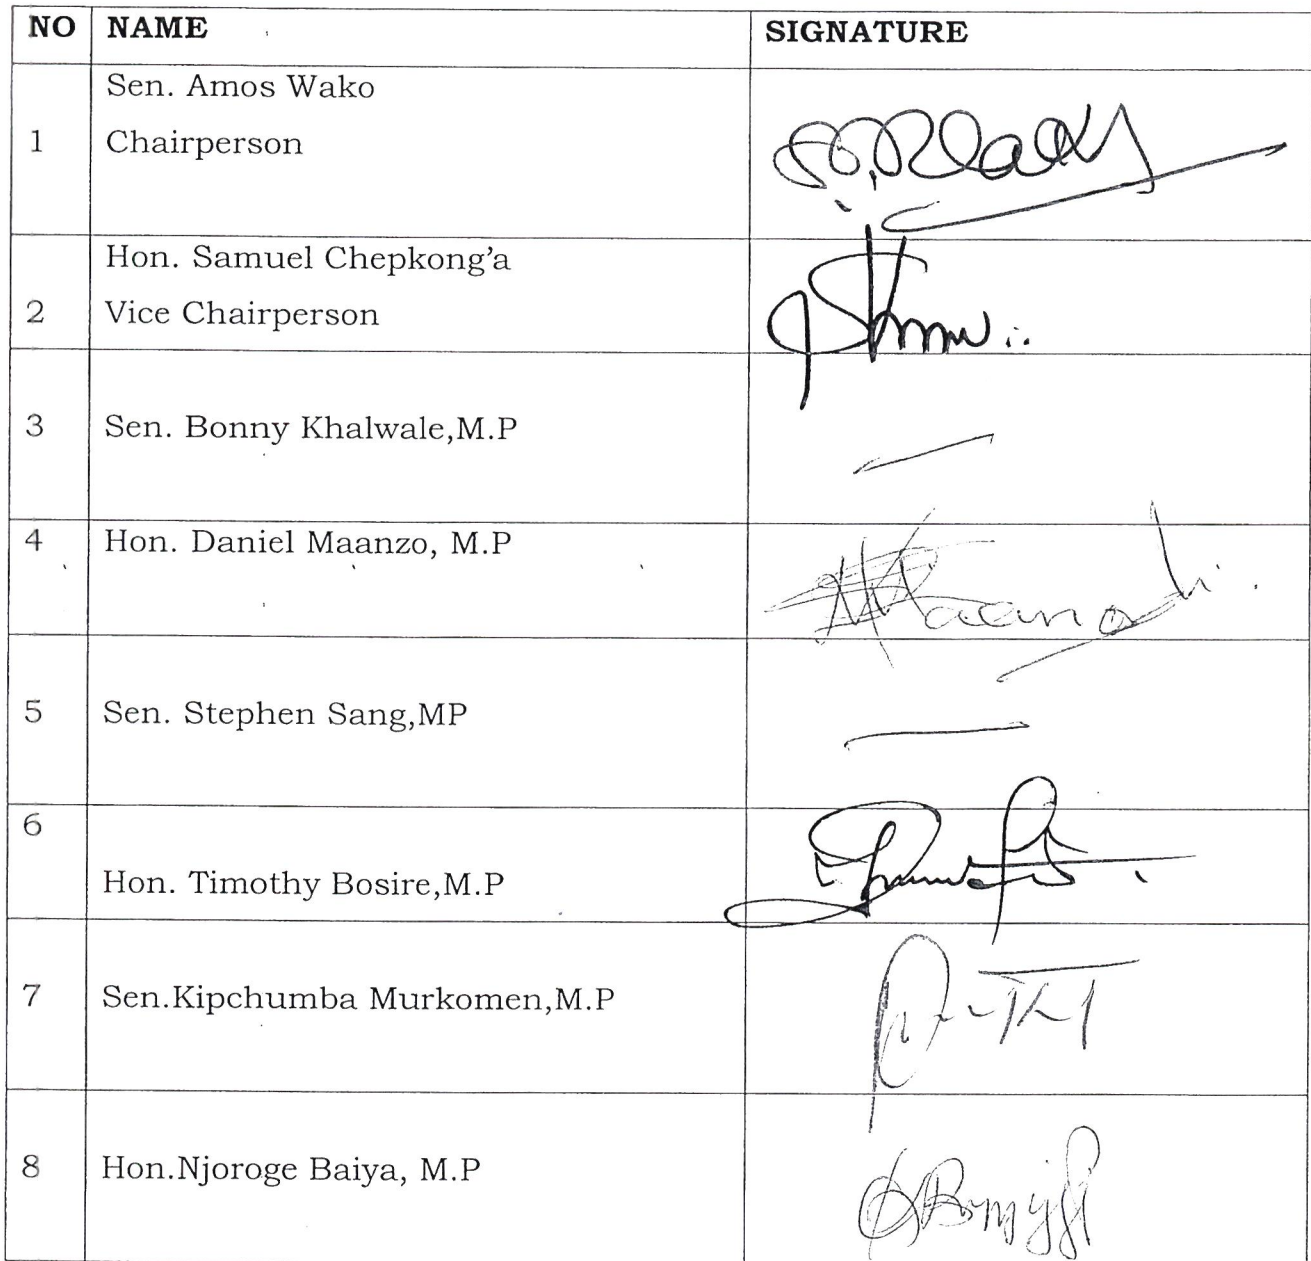 NO NAME SIGNATURE
Sen. Amos Wako
1 Chairperson
Hon. Samuel Chepkong’a
2 Vice Chairperson
3 Sen. Bonny Khalwale,M.P
4 Hon. Daniel Maanzo, M.P
5 Sen. Stephen Sang,MP
6
Hon. Timothy Bosire,M.P
7 Sen.Kipchumba Murkomen,M.P
8 Hon.Njoroge Baiya, M.P